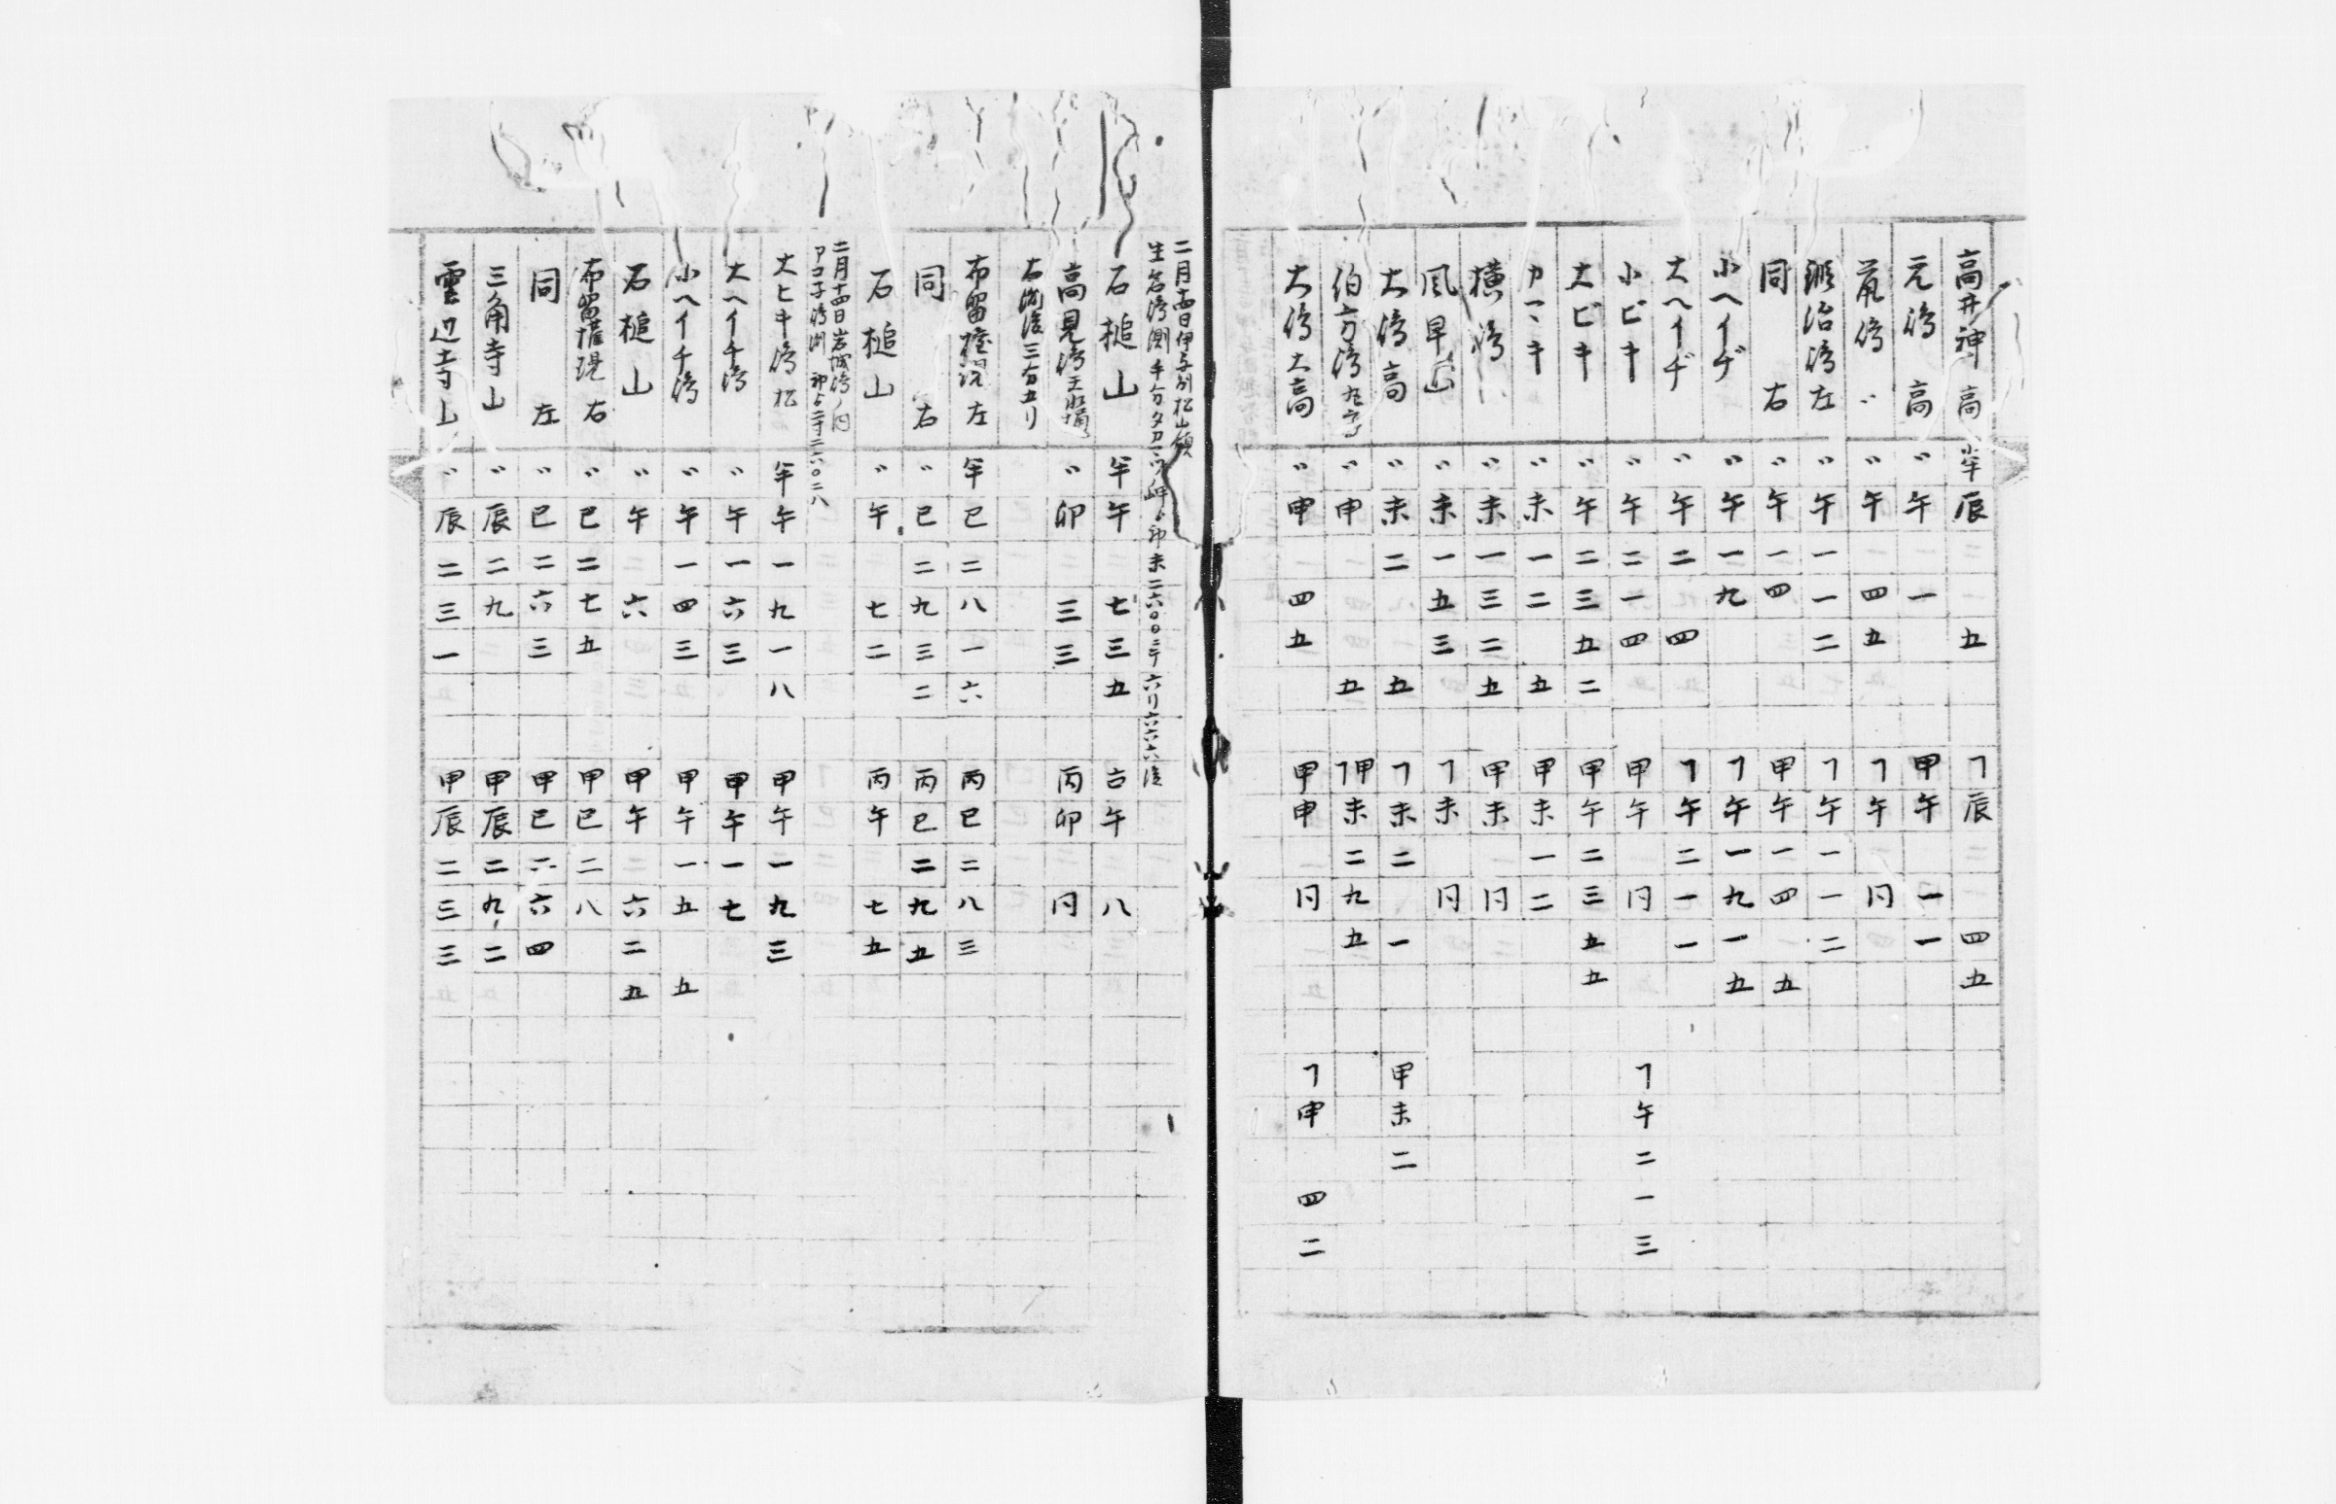 高井神 高 小半 辰 五 ㄱ辰 四五
元㠀 高 〃 午 一 甲午 一一
㠀 〃 〃 午 四五 ㄱ午 円
治㠀 左 〃 午 一一二 ㄱ午 一一二
同 右 〃 午 一四 甲午 一四 五
小ヘイヂ 〃 午 一九 ㄱ午 一九一五
大ヘイヂ 〃 午 二 四 ㄱ午 二一一
小ビキ 〃 午 二一四 甲午 円 ㄱ午 二一三
大ビキ 〃 午 二三五二 甲午 二三五五
〃 未 一二 五 甲未 一二
横㠀 〃 未 一三二五 甲未 円
風早 〃 未 一五三 ㄱ未 円
大㠀 高 〃 未 二 五 ㄱ未 二 一 甲未 二
伯方㠀 〃 申 五 ㄱ甲未 二九五
大㠀 大高 〃 申 四五 甲申 円 ㄱ申 四二
二月十四日伊予州松山領
生名㠀測 印未二六〇〇 六リ六六六
石槌山 半午 七三五 午 八
高見㠀 〃 卯 三三 丙卯 円
右 三分五リ
布留 左 半巳 二八一六 丙巳 二八三
同 右 〃 巳 二九三二 丙巳 二九五
石槌山 〃 午 七二 丙午 七五
二月十四日岩城㠀ノ内
アコ子㠀渕 二六〇二八
大ヒキ㠀 松 半午 一九一八 甲午 一九三
大ヘイチ㠀 〃 午 一六三 甲午 一七
小ヘイチ㠀 〃 午 一四三 甲午 一五 五
石槌山 〃 午 六 甲午 六二五
布留 右 〃 巳 二七五 甲巳 二八
同 左 〃 巳 二六三 甲巳 二六四
三角寺山 〃 辰 二九 甲辰 二九二
雲辺寺山 〃 辰 二三一 甲辰 二三三